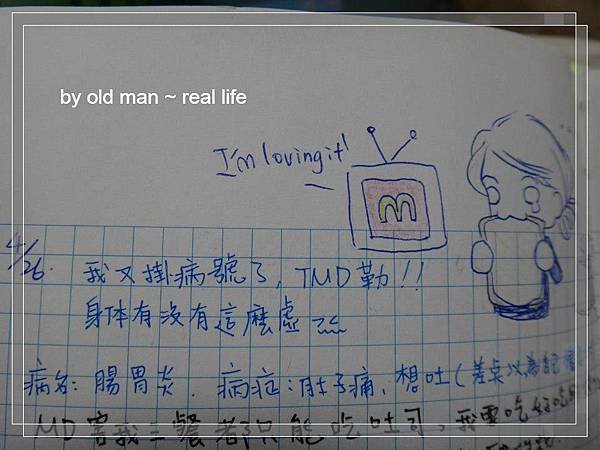 by old man ~ real life
I'm lovin git!
m
4/26. 我又掛病號了, TMD勒!!
身体有沒有這麼虛
病名: 腸胃炎. 病症: 肚子痛, 想吐(差点以為自己
MD害我三餐都只能吃吐司, 我要吃好吃